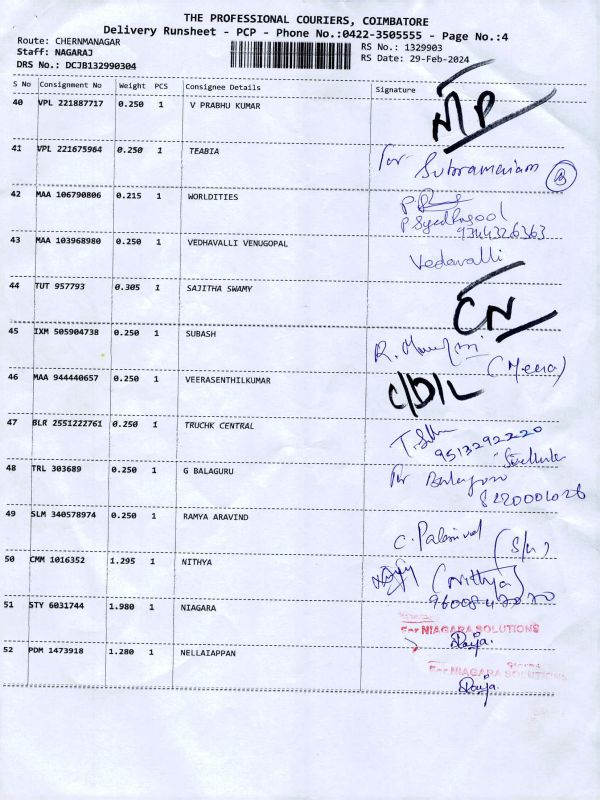 THE PROFESSIONAL COURIERS, COIMBATORE
Delivery Runsheet - PCP - Phone No.:0422-3505555 - Page No.:4
Route: CHERNMANAGAR
RS No.: 1329903
Staff: NAGARAJ
RS Date: 29-Feb-2024
DRS No.: DCJB132990304
S No Consignment No Weight PCS Consignee Details Signature
40 VPL 221887717 0.250 1 V PRABHU KUMAR
N/P
41 VPL 221675964 0.250 1 TEABIA
For Subramaniam
42 MAA 106790806 0.215 1 WORLDITIES
P Syed Rasool
9344326363
43 MAA 103968980 0.250 1 VEDHAVALLI VENUGOPAL
Vedavalli
44 TUT 957793 0.305 1 SAJITHA SWAMY
CN
45 IXM 505904738 0.250 1 SUBASH
R.
(Meena)
46 MAA 944440657 0.250 1 VEERASENTHILKUMAR
C/D/L
47 BLR 2551222761 0.250 1 TRUCHK CENTRAL
9513292220
48 TRL 303689 0.250 1 G BALAGURU
For Balaguru
49 SLM 340578974 0.250 1 RAMYA ARAVIND
C. Palanivel
50 CMM 1016352 1.295 1 NITHYA
(Nithya)
51 STY 6031744 1.980 1 NIAGARA
For NIAGARA SOLUTIONS
Raija.
52 PDM 1473918 1.280 1 NELLAIAPPAN
For NIAGARA SOLUTIONS
Raija.